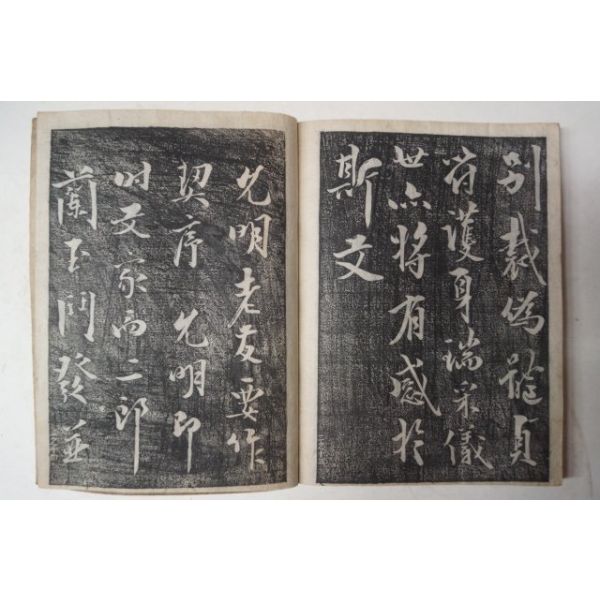 別裁偽體貞
肯護身瑞采儀
世亦將有感於
斯文
允明老友要作
契序允明即
时文家而二郎
蘭玉鬥發並